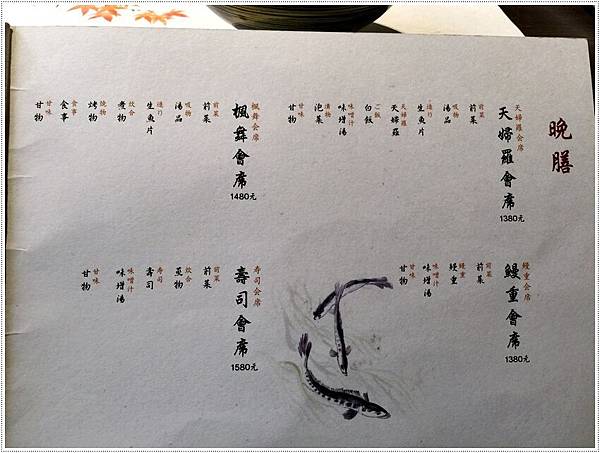 晚膳
天婦羅会席
天婦羅會席
1380元
前菜
前菜
吸物
湯品
造り
生魚片
天婦羅
天婦羅
ご飯
白飯
味噌汁
味增湯
漬物
泡菜
甘味
甘物
楓舞会席
楓舞會席
1480元
前菜
前菜
吸物
湯品
造り
生魚片
炊合
煮物
焼物
烤物
食事
食事
甘味
甘物
鰻重会席
鰻重會席
1380元
前菜
前菜
鰻重
鰻重
味噌汁
味增湯
甘味
甘物
寿司会席
壽司會席
1580元
前菜
前菜
炊合
煮物
寿司
壽司
味噌汁
味增湯
甘味
甘物